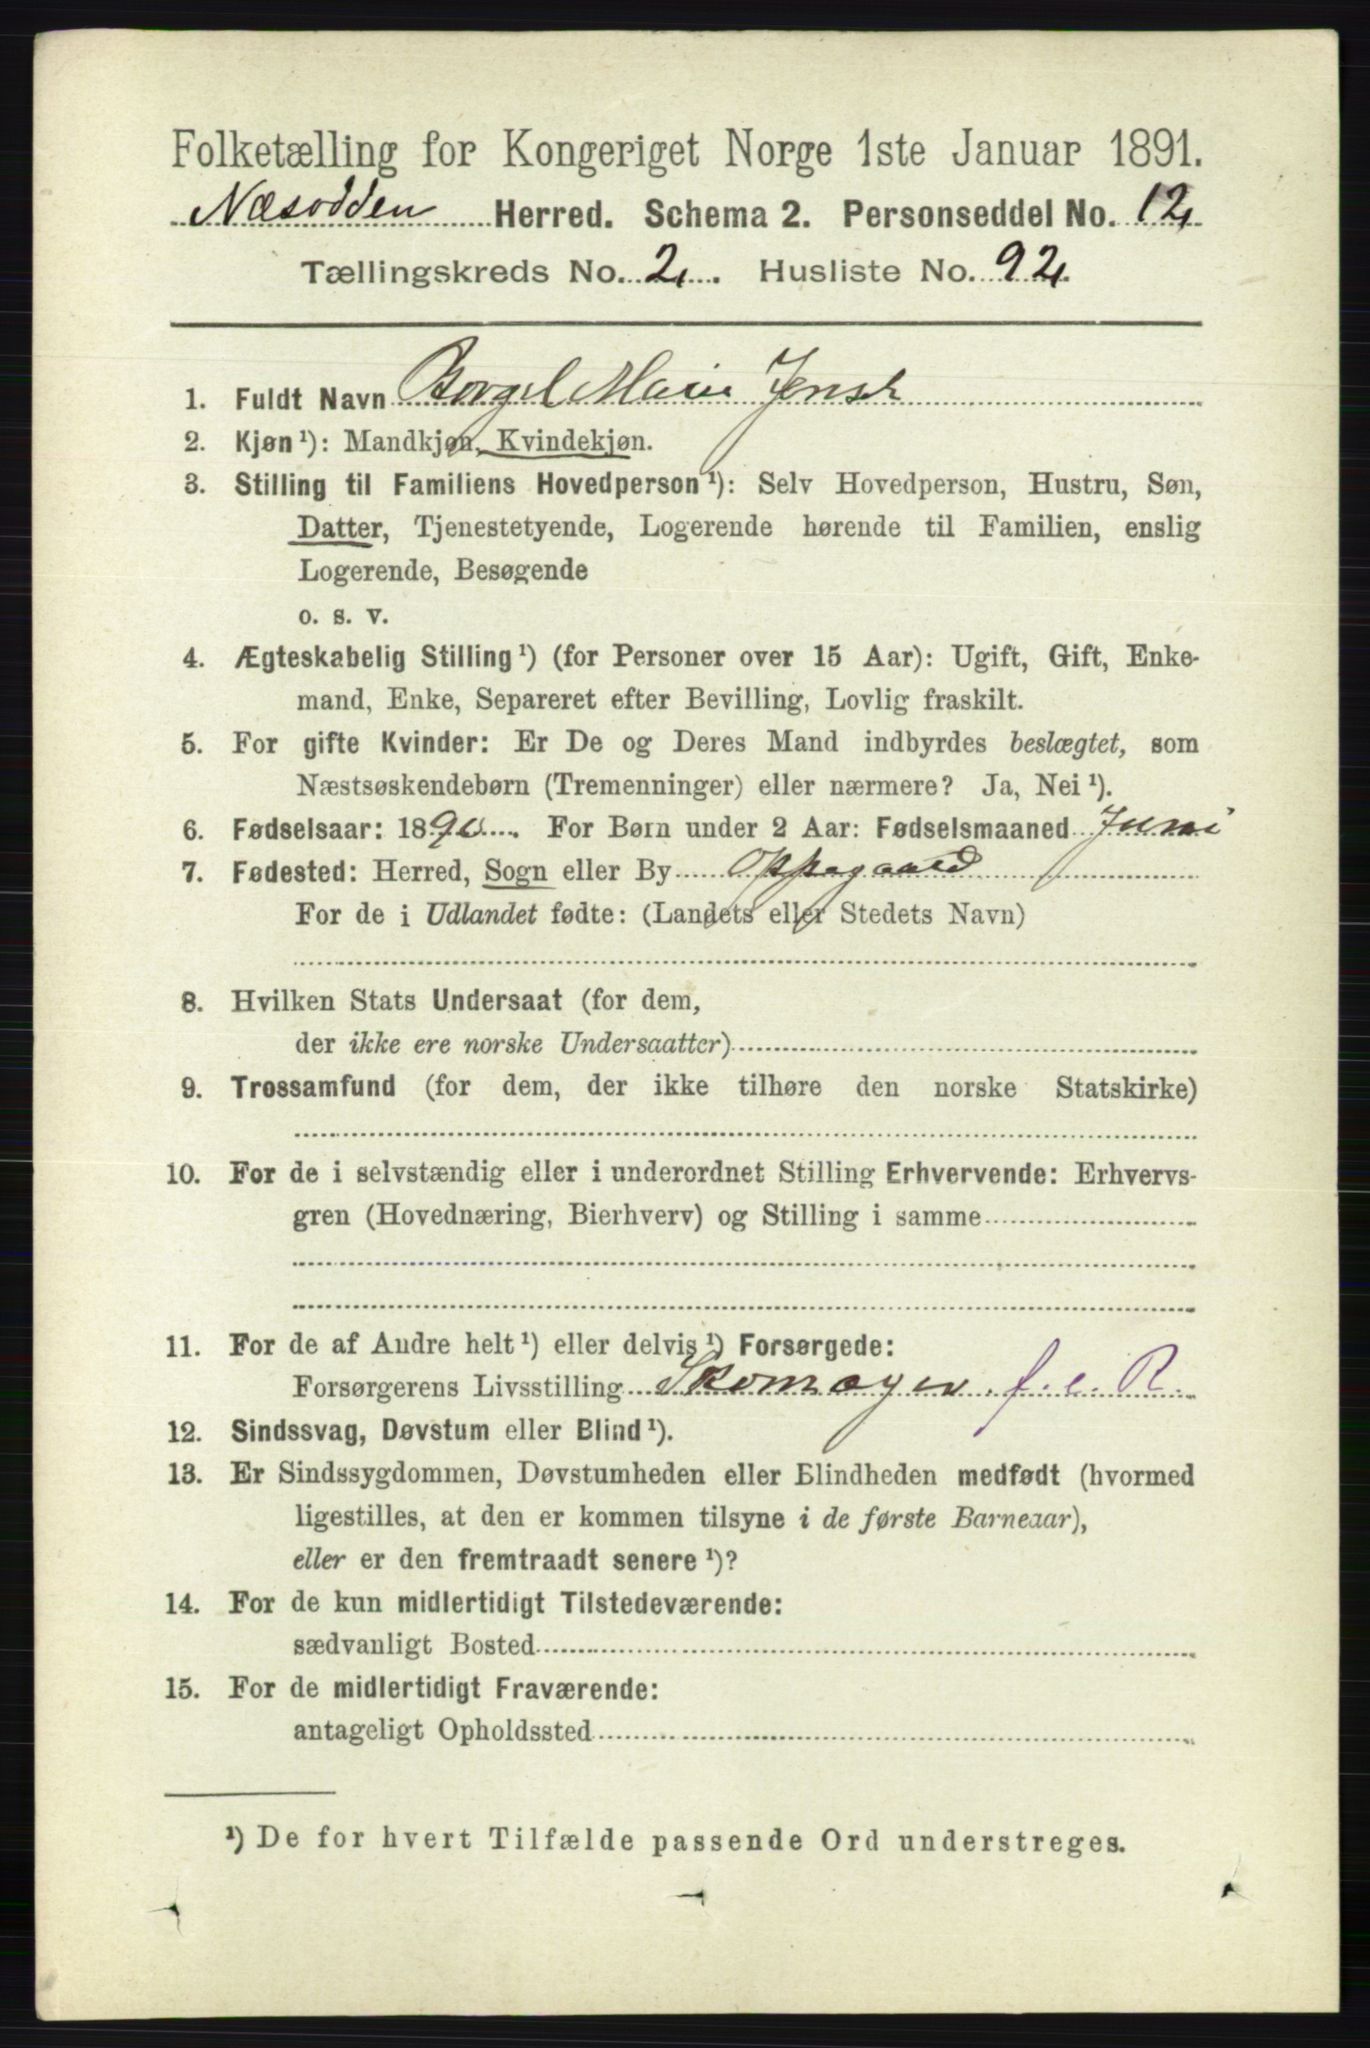 Folketælling for Kongeriget Norge 1ste Januar 1891.
Næsodden Herred. Schema 2. Personseddel No. 12
Tællingskreds No. 2. Husliste No. 92.
1. Fuldt Navn Borgel Marie Jensd
2. Kjøn ¹): Mandkjøn, Kvindekjøn.
3. Stilling til Familiens Hovedperson ¹): Selv Hovedperson, Hustru, Søn,
Datter, Tjenestetyende, Logerende hørende til Familien, enslig
Logerende, Besøgende
o. s. v.
4. Ægteskabelig Stilling ¹) (for Personer over 15 Aar): Ugift, Gift, Enke-
mand, Enke, Separeret efter Bevilling, Lovlig fraskilt.
5. For gifte Kvinder: Er De og Deres Mand indbyrdes beslægtet, som
Næstsøskendebørn (Tremenninger) eller nærmere? Ja, Nei ¹).
6. Fødselsaar: 1890. For Børn under 2 Aar: Fødselsmaaned Juni
7. Fødested: Herred, Sogn eller By Oppegaard
For de i Udlandet fødte: (Landets eller Stedets Navn)
8. Hvilken Stats Undersaat (for dem,
der ikke ere norske Undersaatter)
9. Trossamfund (for dem, der ikke tilhøre den norske Statskirke)
10. For de i selvstændig eller i underordnet Stilling Erhvervende: Erhvervs-
gren (Hovednæring, Bierhverv) og Stilling i samme
11. For de af Andre helt ¹) eller delvis ¹) Forsørgede:
Forsørgerens Livsstilling Skomager. f. e. R.
12. Sindssvag, Døvstum eller Blind ¹).
13. Er Sindssygdommen, Døvstumheden eller Blindheden medfødt (hvormed
ligestilles, at den er kommen tilsyne i de første Barneaar),
eller er den fremtraadt senere ¹)?
14. For de kun midlertidigt Tilstedeværende:
sædvanligt Bosted
15. For de midlertidigt Fraværende:
antageligt Opholdssted
¹) De for hvert Tilfælde passende Ord understreges.